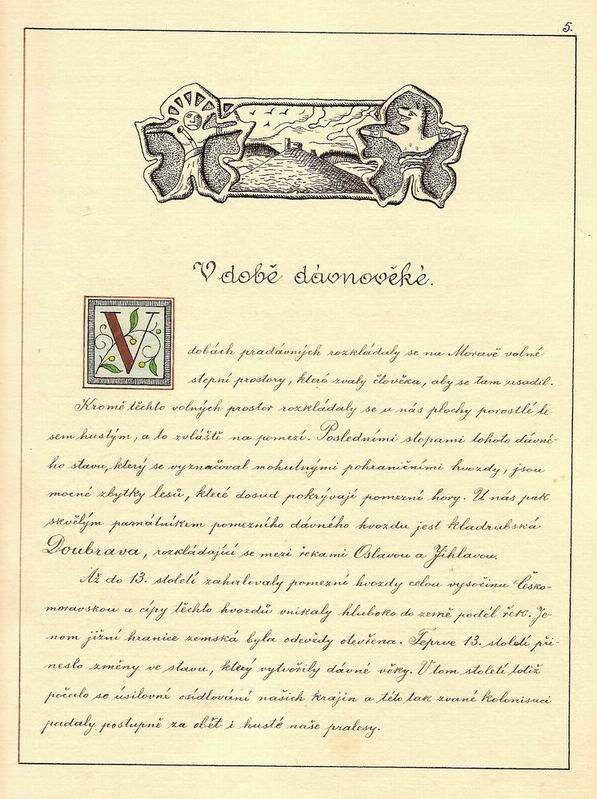 5.
V době dávnověké.
V dobách pradávných rozkládaly se na Moravě volné
stepní prostory, které zvaly člověka, aby se tam usadil.
Kromě těchto volných prostor rozkládaly se u nás plochy porostlé le
sem hustým, a to zvláště na pomezí. Posledními stopami tohoto dávné-
ho stavu, který se vyznačoval mohutnými pohraničními hvozdy, jsou
mocné zbytky lesů, které dosud pokrývají pomezní hory. U nás pak
skvělým památníkem pomezního dávného hvozdu jest kladrubská
Doubrava, rozkládající se mezi řekami Oslavou a Jihlavou.
Až do 13. století zahalovaly pomezní hvozdy celou vysočinu Česko-
moravskou a cípy těchto hvozdů vnikaly hluboko do země podél řek. Je-
nom jižní hranice zemská byla odevždy otevřena. Teprve 13. století při-
neslo změny ve stavu, který vytvořily dávné věky. V tom století totiž
počalo se úsilovné osídlování našich krajin a této tak zvané kolonisaci
padaly postupně za oběť i husté naše pralesy.